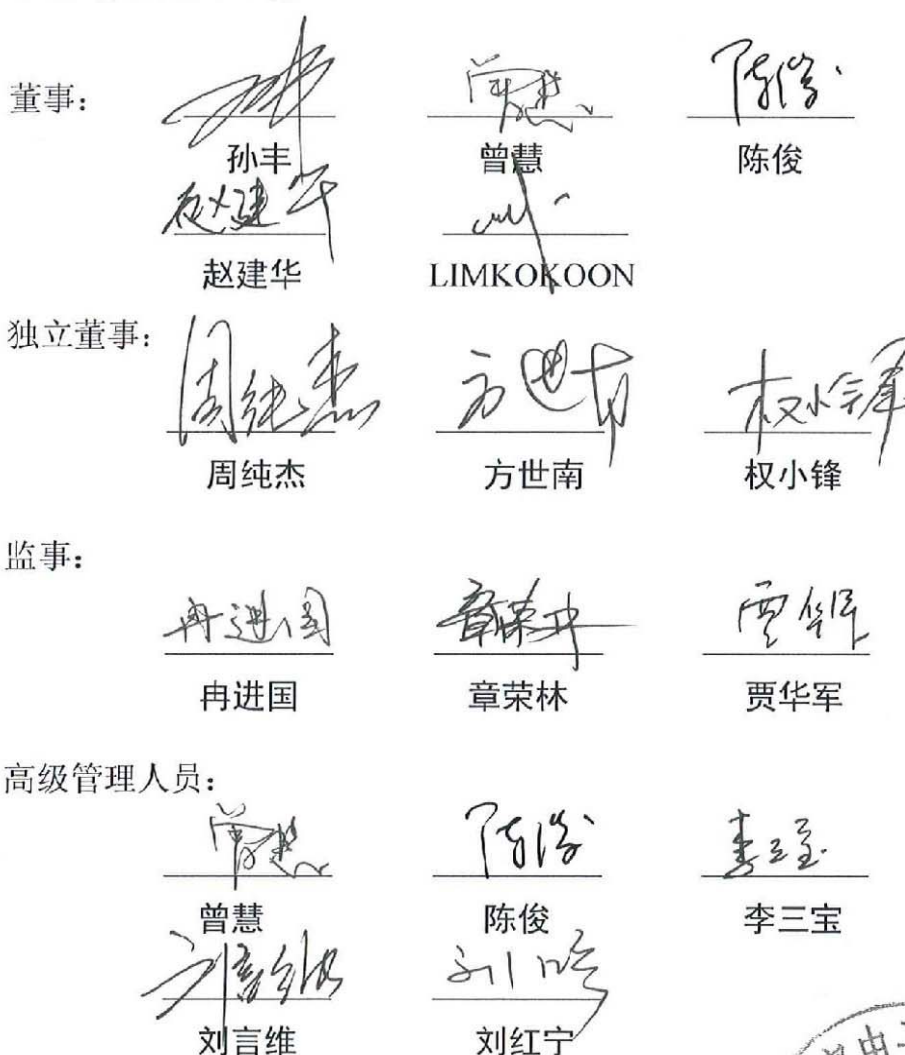 董事：
孙丰 曾慧 陈俊
赵建华 LIMKOKOON
独立董事：
周纯杰 方世南 权小锋
监事：
冉进国 章荣林 贾华军
高级管理人员：
曾慧 陈俊 李三宝
刘言维 刘红宁